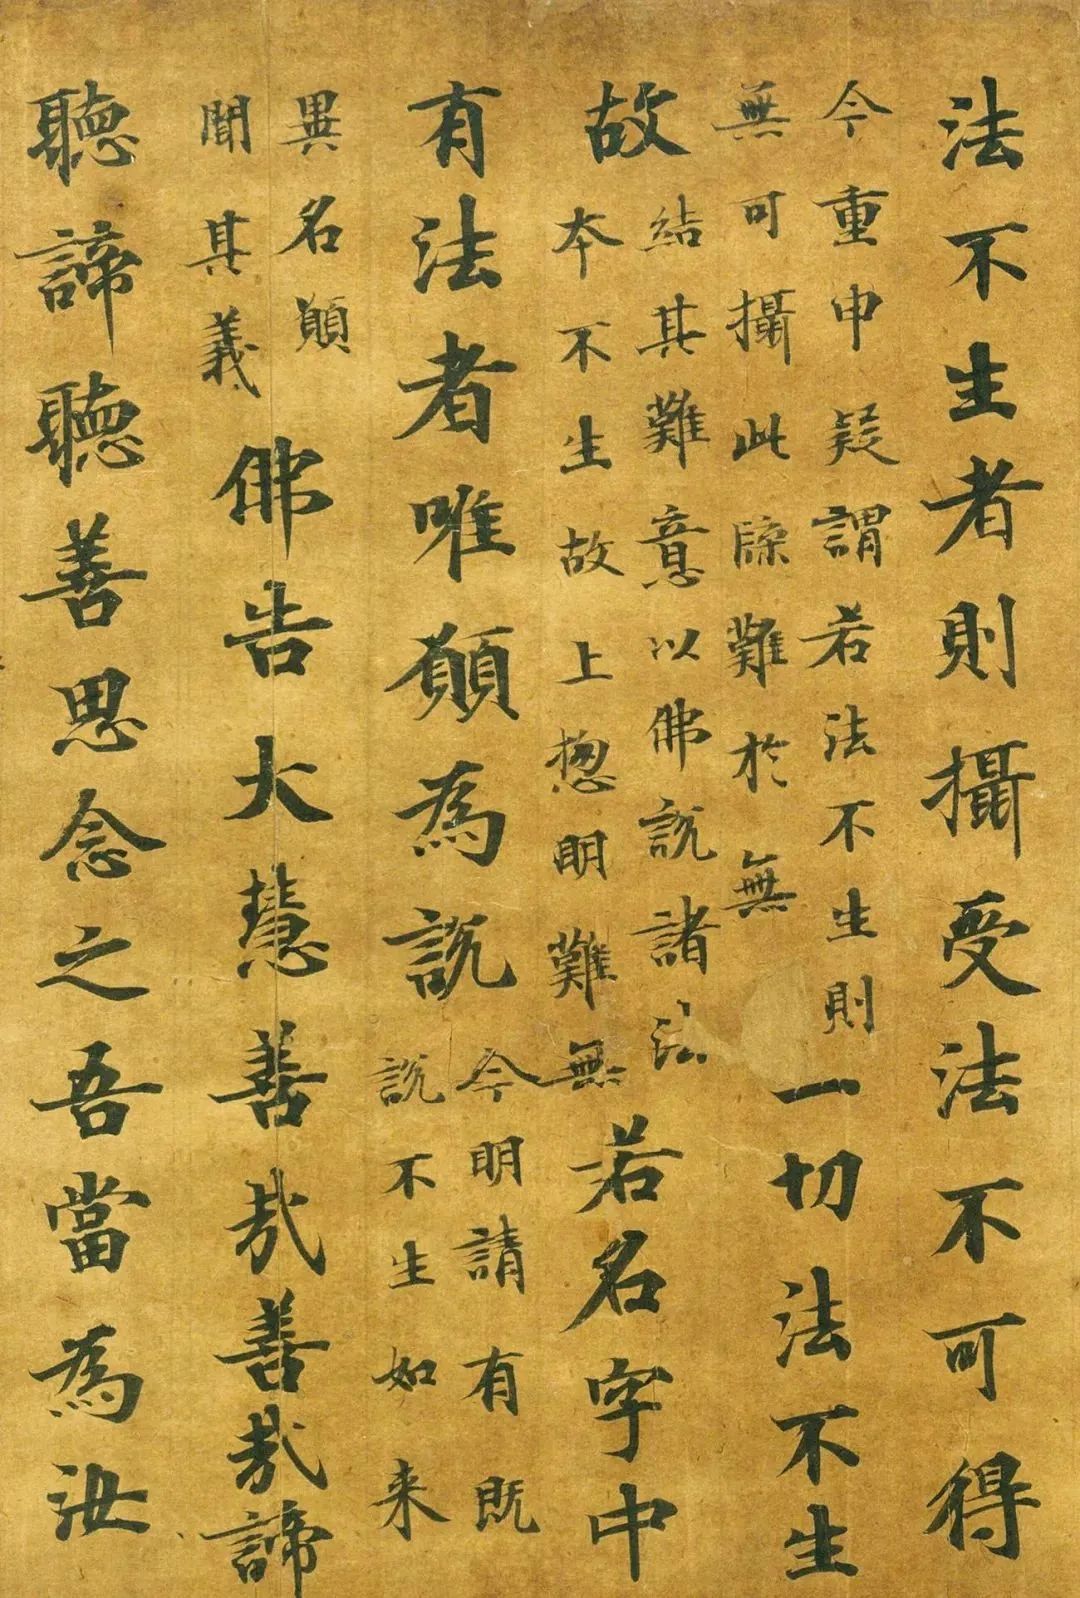 法不生者則攝受法不可得
今重申疑謂若法不生則
無可攝此牒難於無
一切法不生
故
結其難意以佛說諸法
本不生故上揔明難無
若名字中
有法者唯願為說
今明請有既
說不生如来
異名願
聞其義
佛告大慧善哉善哉諦
聽諦聽善思念之吾當為汝